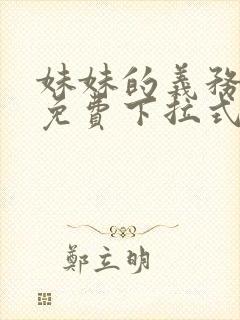 妹妹的義務
免費下拉式
鄭立明